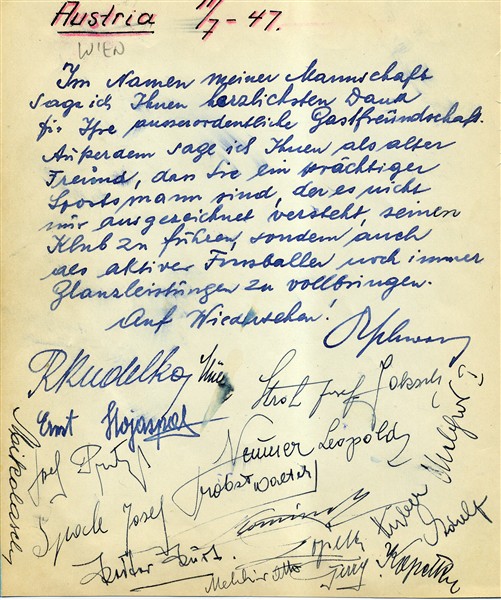 Austria 11/7 - 47.
WIEN
Im Namen meiner Mannschaft
sage ich Ihnen herzlichsten Dank
für Ihre ausserordentliche Gastfreundschaft.
Außerdem sage ich Ihnen als alter
Freund, das Sie ein prächtiger
Sportsmann sind, der es nicht
nur ausgezeichnet versteht, seinen
Klub zu führen, sondern auch
als aktiver Fussballer noch immer
Glanzleistungen zu vollbringen.
Auf Wiedersehen!
R Kudelka
Stroh Josef Joksch
Ernst Stojaspal
Mikolasch
Neumer Leopold
Probst Walter
Spack Josef
Melchior II
Kominek
Kurt
Melchior Otto